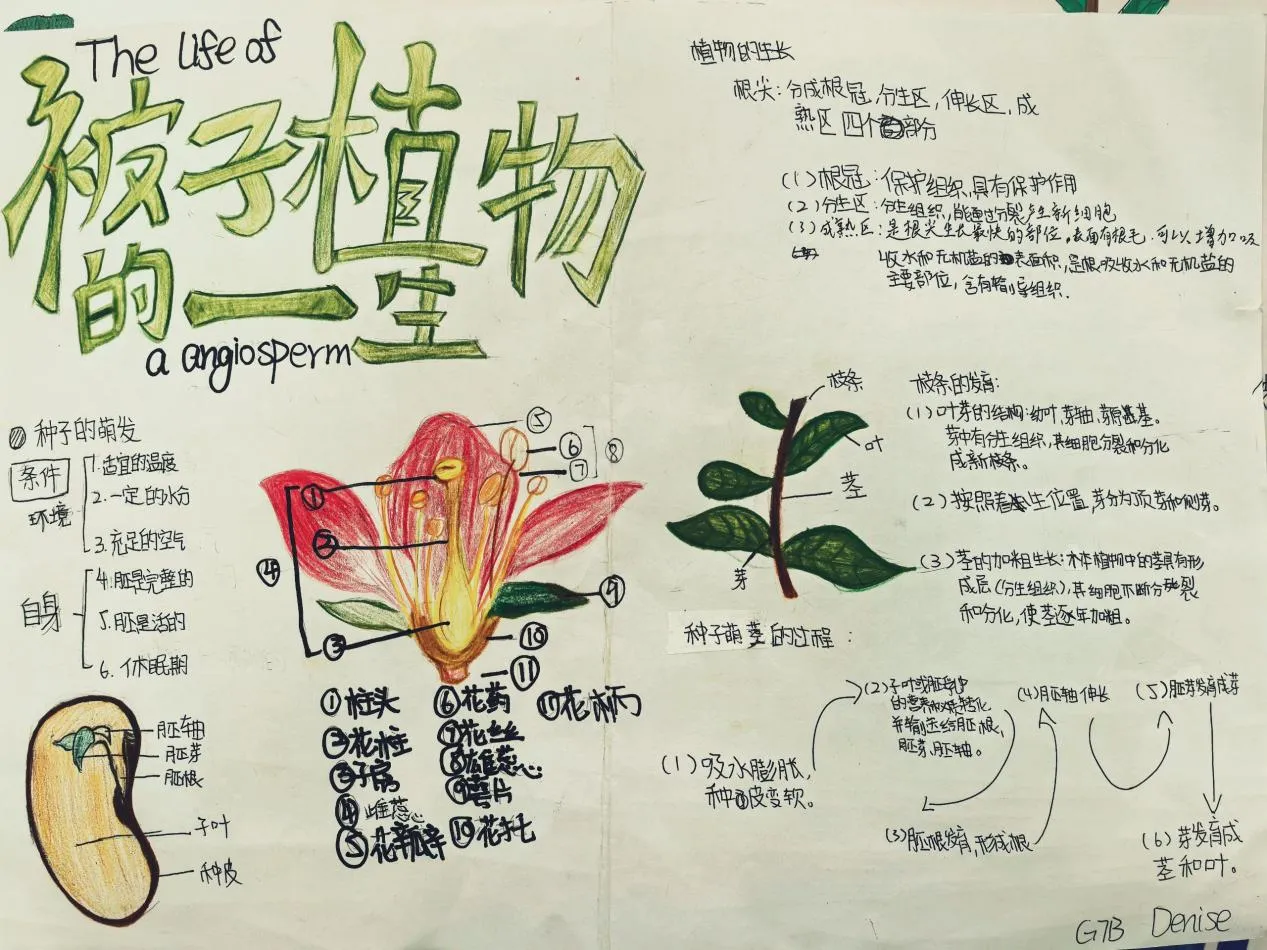 The life of
被子植物
的一生
a angiosperm
种子的萌发
条件
环境
1. 适宜的温度
2. 一定的水分
3. 充足的空气
自身
4. 胚是完整的
5. 胚是活的
6. 休眠期
胚轴
胚芽
胚根
子叶
种皮
①
②
③
④
⑤
⑥
⑦
⑧
⑨
⑩
⑪
①柱头
②花柱
③子房
④雌蕊
⑤花瓣
⑥花药
⑦花丝
⑧雄蕊
⑨萼片
⑩花托
⑪花柄
植物的生长
根尖：分成根冠，分生区，伸长区，成
熟区四个部分
（1）根冠：保护组织，具有保护作用
（2）分生区：分生组织，能通过分裂产生新细胞
（3）成熟区：是根尖生长最快的部位，表面有根毛，可以增加吸
收水和无机盐的表面积，是根吸收水和无机盐的
主要部位，含有输导组织.
枝条
叶
茎
芽
枝条的发育：
（1）叶芽的结构：幼叶，芽轴，芽原基。
芽中有分生组织，其细胞分裂和分化
成新枝条。
（2）按照着生位置，芽分为顶芽和侧芽。
（3）茎的加粗生长：木本植物中的茎具有形
成层（分生组织），其细胞不断分裂
和分化，使茎逐年加粗。
种子萌芽的过程：
（1）吸水膨胀，
种皮变软。
（2）子叶或胚乳中
的营养物质转化
并输送给胚根，
胚芽、胚轴。
（3）胚根发育，形成根
（4）胚轴伸长
（5）胚芽发育成芽
（6）芽发育成
茎和叶。
G7B Denise